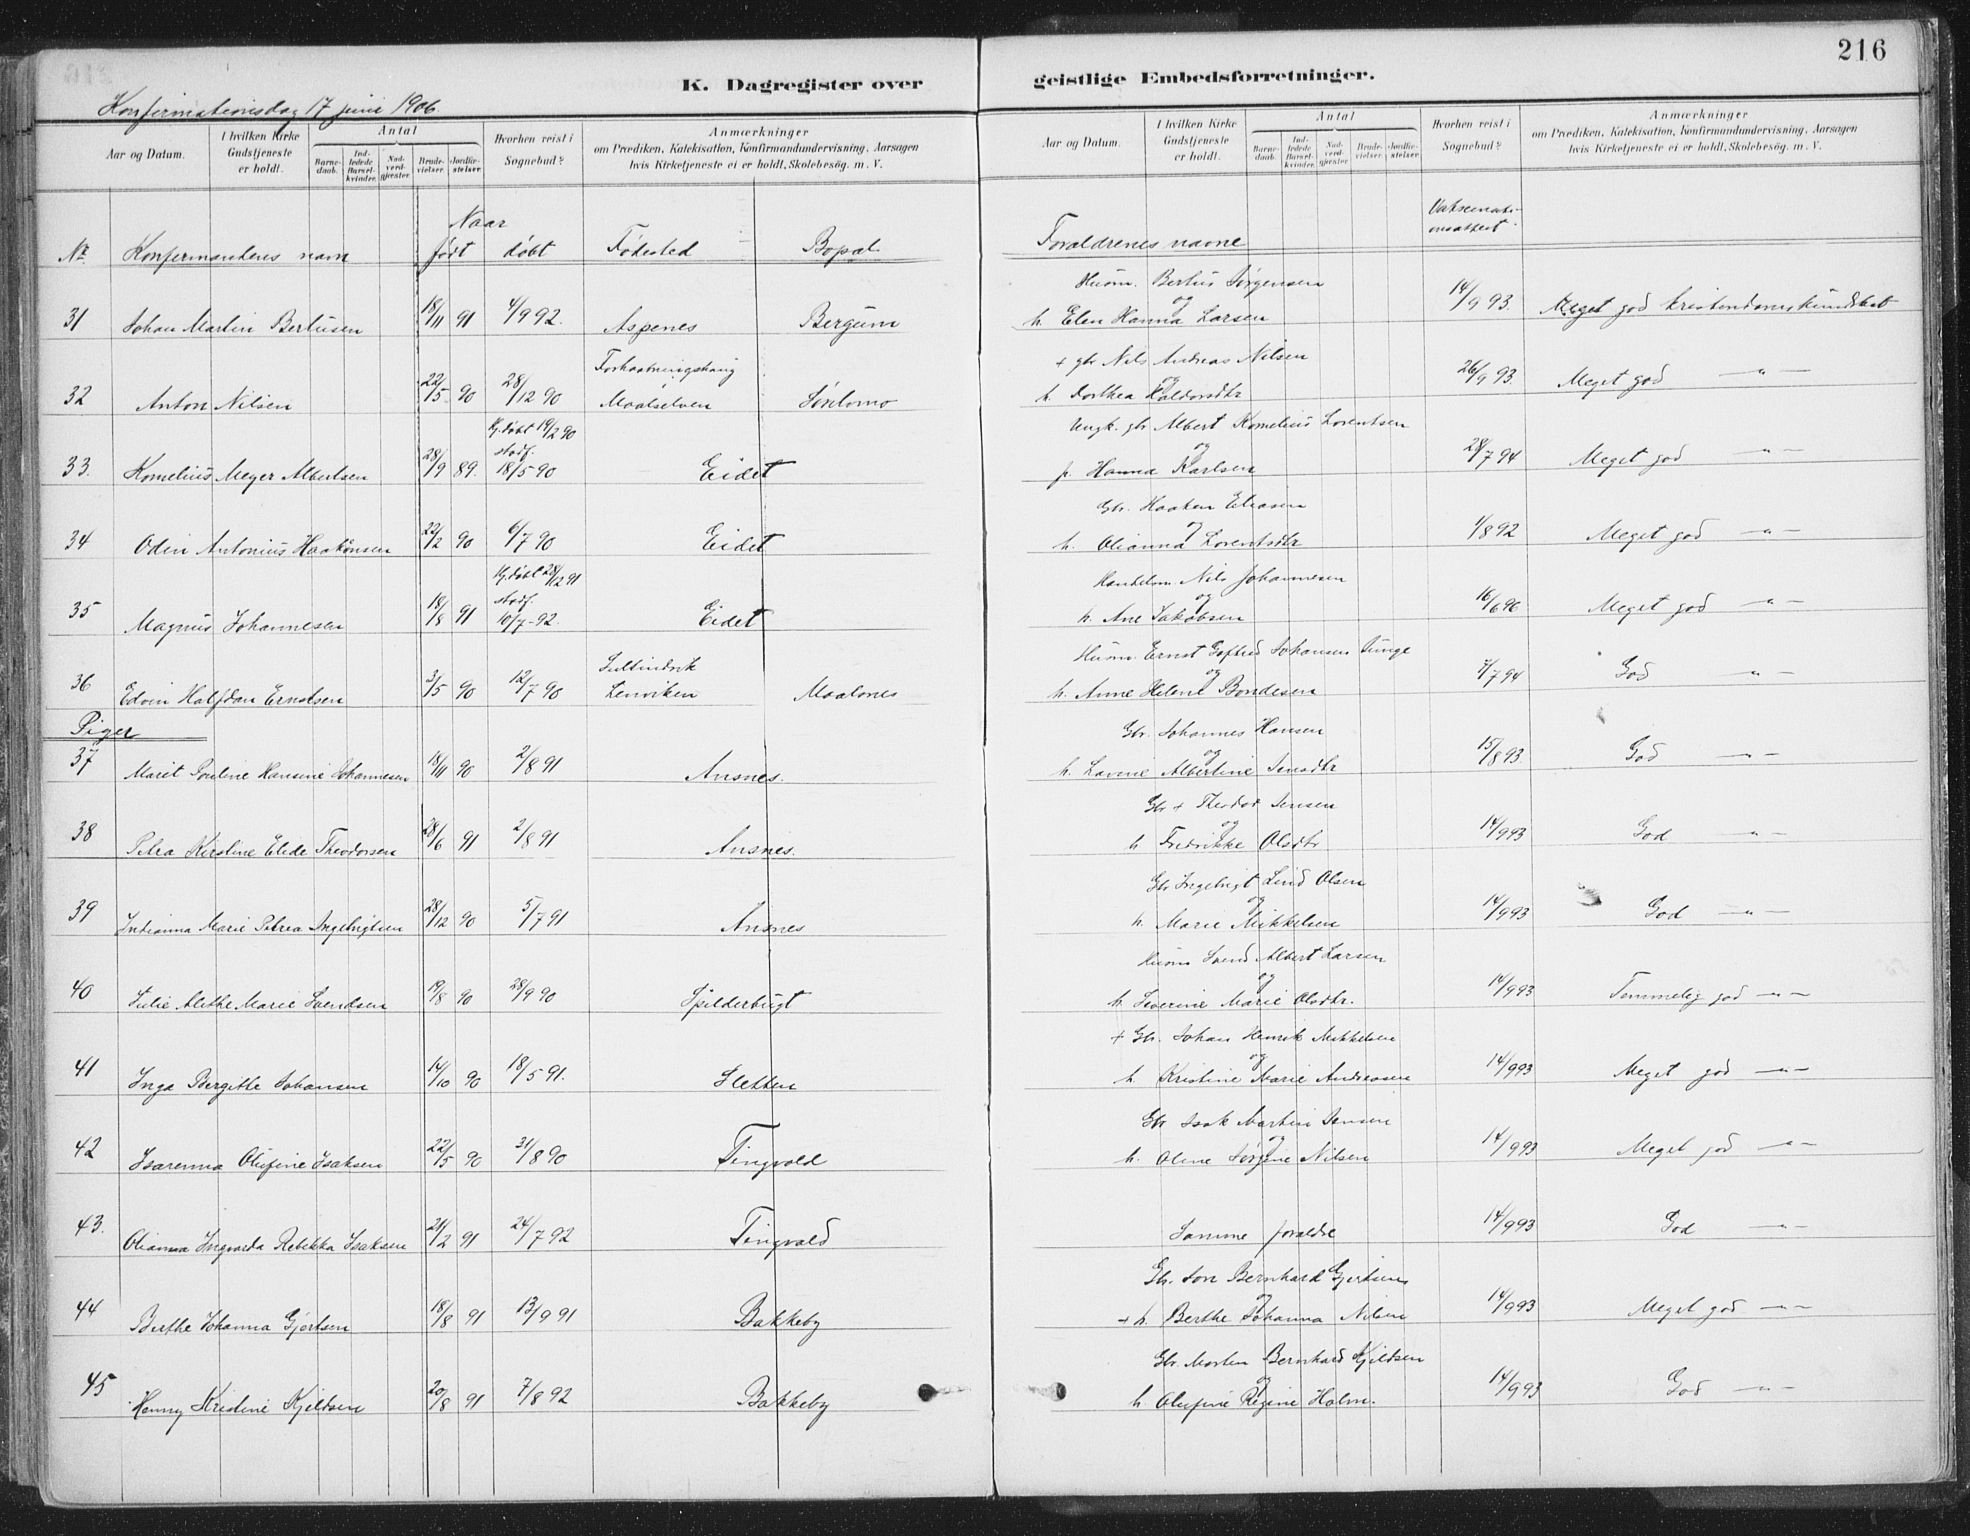 216
K. Dagregister over geistlige Embedsforretninger.
Konfirmationsdag 17 juni 1906.
Aar og Datum. I hvilken Kirke Gudstjeneste er holdt. Antal Barne-daab. Ind-ledede Barsel-kvinder. Nad-verd-gjester. Brude-vielser. Jordfæ-stelser. Hvorhen reist i Sognebud? Anmærkninger om Prædiken, Katekisation, Konfirmandundervisning, Aarsagen hvis Kirketjeneste ei er holdt, Skolebesøg. m. V.
Aar og Datum. I hvilken Kirke Gudstjeneste er holdt. Antal Barne-daab. Ind-ledede Barsel-kvinder. Nad-verd-gjester. Brude-vielser. Jordfæ-stelser. Hvorhen reist i Sognebud? Anmærkninger om Prædiken, Katekisation, Konfirmandundervisning, Aarsagen hvis Kirketjeneste ei er holdt, Skolebesøg. m. V.
Naar
Nr Konfirmandens navn født døbt Fødested Bopæl Forældrenes navne
Husm. Bertus Jørgensen
og
31 Johan Martin Bertusen 18/11 91 4/9 92. Aspenes Bergum h. Elen Hanna Larsen 14/9 93. Meget god kristendomskundskab
+ gbr Nils Andreas Nilsen
og
32 Anton Nilsen 22/5 90 28/12 90 Maalselven Sørlomo h. Dorthea Haldorsdtr 26/9 93. Meget god —"—
Ungk. gbr Albert Kornelius Lorentsen
og
33. Kornelius Meyer Albertsen 28/9 89. Hj. døbt 19/2 90 stadf. 18/5 90 Eidet p. Hanna Karlsen 28/7 94 Meget god —"—
Gbr. Haaken Eliasen
og
34 Odin Antonius Haakonsen 22/2 90 6/7 90 Eidet h. Olianna Lorentsdtr 1/8 92 Meget god —"—
Handelsm. Nils Johannesen
og
35 Magnus Johannesen 18/8 91 Hj. døbt 28/12 91 stadf. 10/7 - 92. Eidet h. Ane Jakobsen 16/6 96 Meget god —"—
Husm. Ernst Gotfred Johansen Tunge
og
36 Edvin Halfdan Ernstsen 3/5 90 12/7 90 Lenviken Maalsnes h. Anne Helene Bondesen 7/7 94 God —"—
Piger
Gbr. Johannes Hansen
og
37 Marit Pauline Hansine Johannesen 18/11 90 2/8 91 Ansnes. h. Lavine Albertine Jensdtr 15/8 93. God —"—
Gbr + Theodor Jensen
og
38 Petra Kirstine Elide Theodorsen 28/6 91 2/8 91 Ansnes. h Fredrikke Olsdtr 14/9 93 God —"—
Gbr Ingebrigt Lind Olsen
og
39 Marie Petrea Ingebrigtsen 28/12 90 5/7 91 Ansnes h. Marie Mikkelsen 14/9 93 God —"—
Husm Svend Albert Larsen
og
40 Julie Alethe Marie Svendsen 19/8 90 28/9 90 Spilderbugt h. Severine Marie Olsdtr. 14/9 93 Temmelig god —"—
+ Gbr. Johan Henrik Mikkelsen
og
41 Inga Bergitte Johansen 14/10 90 18/5 91. Sletten h. Kristine Marie Andreasen 14/9 93 Meget god —"—
Gbr Isak Martin Jensen
og
42 Isarenna Olufine Isaksen 22/5 90 31/8 90 Tingvold h. Oline Sørgine Nilsen 14/9 93 Meget god —"—
43. Olianna Ingvarda Rebekka Isaksen 21/2 91 24/7 92 Tingvold Samme forældre 14/9 93 God —"—
Gbr. Jon Bernhard Gjertsen
og
44 Berthe Johanna Gjertsen 18/8 91 13/9 91 Bakkeby + h. Berthe Johanna Nilsen 14/9 93 Meget god —"—
Gbr. Morten Bernhard Kjeldsen
og
45 Henny Kristine Kjeldsen 20/8 91 7/8 92 Bakkeby h. Olufine Regine Holm. 14/9 93 God —"—